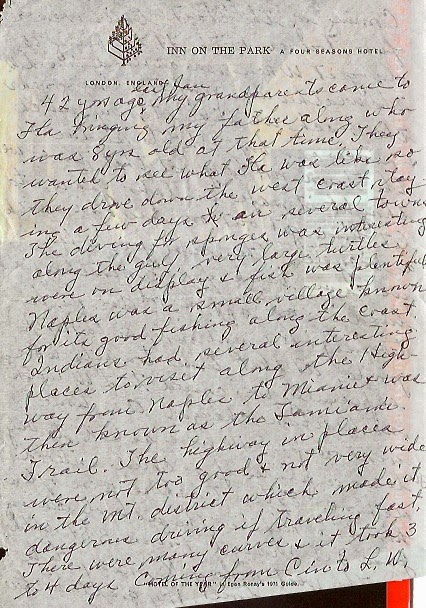 INN ON THE PARK A FOUR SEASONS HOTEL
LONDON, ENGLAND
last Jan
42 yrs ago, my grandparents came to
Fla bringing my father along who
was 8 yrs old at that time. They
wanted to see what Fla was like so
they drove down the west coast, stay
ing a few days in several towns
The diving for sponges was interesting
along the gulf, very large turtles
were on display & fish was plentiful
Naples was a small village known
for its good fishing along the coast
Indians had several interesting
places to visit along the High-
way from Naples to Miami & was
then known as the Tamiami
Trail. The highway in places
were not too good & not very wide
in the Mt. district which made it
dangerous driving if traveling fast.
There were many curves & it took 3
to 4 days coming from Cin to L. W.
"HOTEL OF THE YEAR" in Egon Ronay's 1971 Guide.